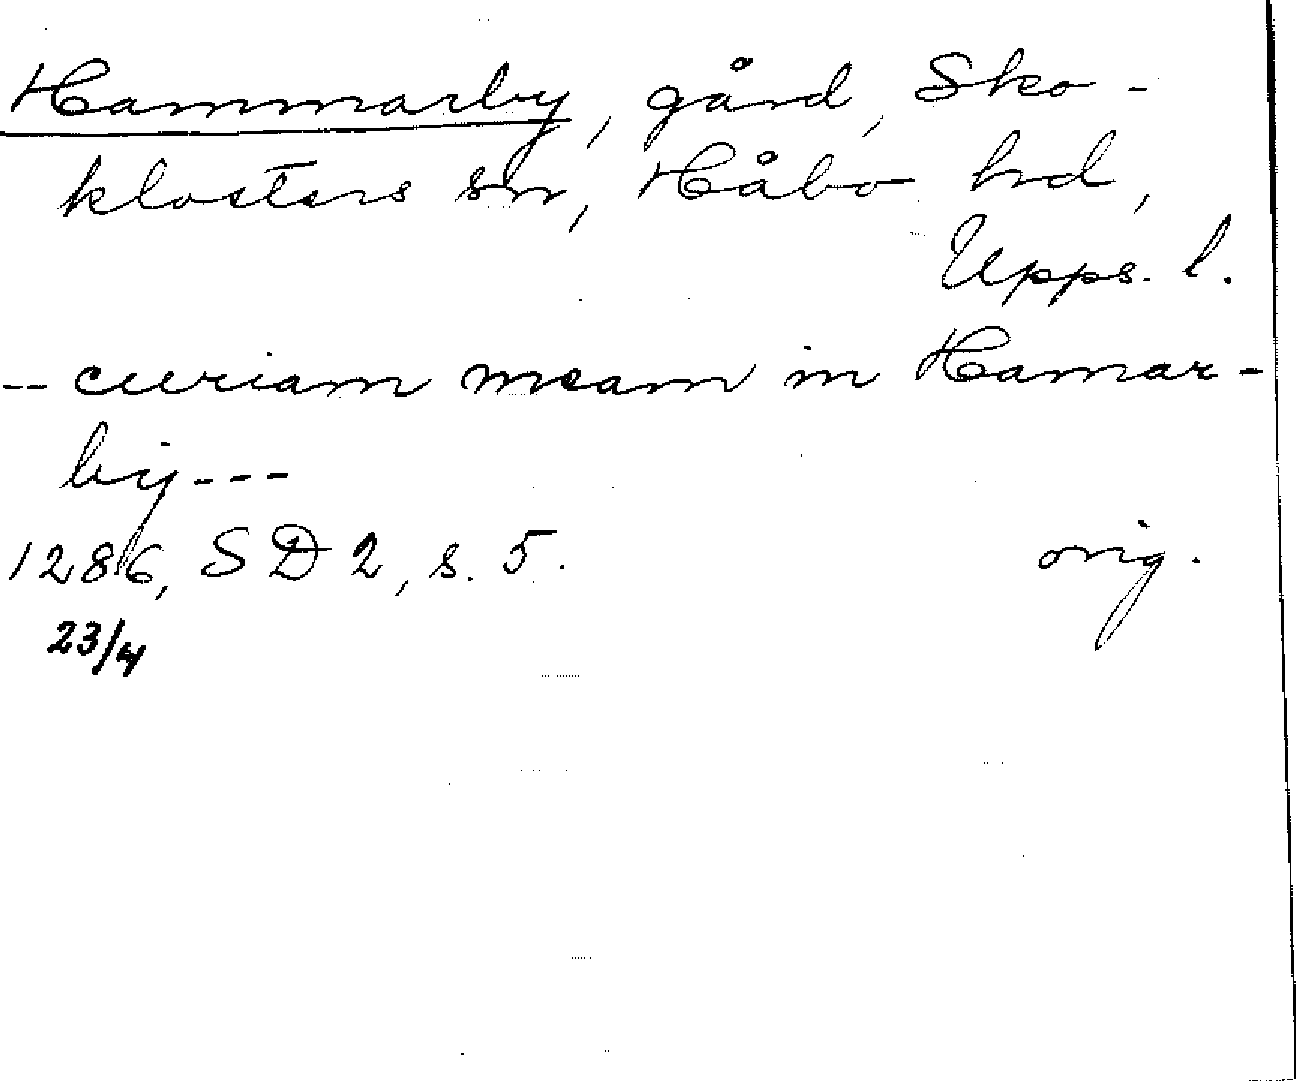 Hammarby, gård, Sko-
klosters sn, Håbo hd,
Upps. l.
-- curiam meam in Hamar-
by ---
1286, SD 2, s. 5. orig.
23/4